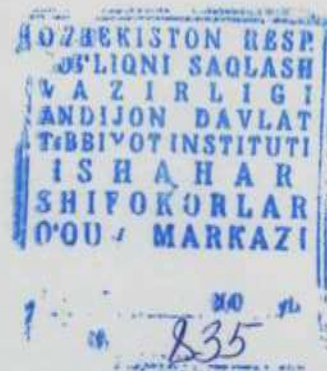 OʻZBEKISTON RESP.
SOGʻLIQNI SAQLASH
VAZIRLIGI
ANDIJON DAVLAT
TIBBIYOT INSTITUTI
ISHAHAR
SHIFOKORLAR
OʻQUV MARKAZI
835